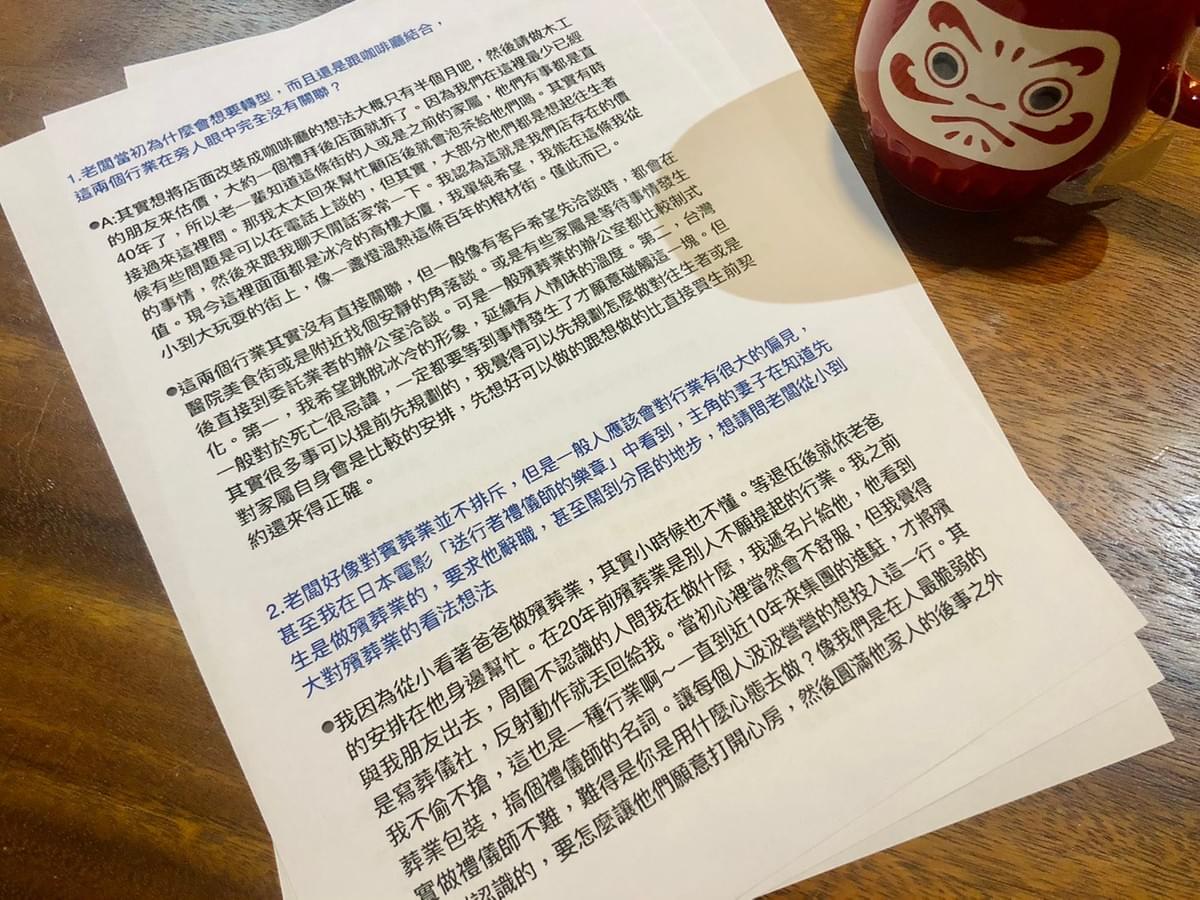 1.老闆當初為什麼會想要轉型，而且還是跟咖啡廳結合，
這兩個行業在旁人眼中完全沒有關聯？
●A:其實想將店面改裝成咖啡廳的想法大概只有半個月吧，然後請做木工
的朋友來估價，大約一個禮拜後店面就拆了。因為我們在這裡最少已經
40年了，所以老一輩知道這條街的人或是之前的家屬，他們有事都是直
接過來這裡問。那我太太回來幫忙顧店後就會泡茶給他們喝。其實有時
候有些問題是可以在電話上談的，但其實，大部分他們都是想起往生者
的事情，然後來跟我聊天閒話家常一下。我認為這就是我們店存在的價
值。現今這裡面面都是冰冷的高樓大廈，我單純希望，我能在這條我從
小到大玩耍的街上，像一盞燈溫熱這條百年的棺材街。僅此而已。
●這兩個行業其實沒有直接關聯，但一般像有客戶希望先洽談時，都會在
醫院美食街或是附近找個安靜的角落談。或是有些家屬是等待事情發生
後直接到委託業者的辦公室洽談。可是一般殯葬業的辦公室都比較制式
化。第一，我希望跳脫冰冷的形象，延續有人情味的溫度。第二，台灣
一般對於死亡很忌諱，一定都要等到事情發生了才願意碰觸這一塊。但
其實很多事可以提前先規劃的，我覺得可以先規劃怎麼做對往生者或是
對家屬自身會是比較的安排，先想好可以做的跟想做的比直接買生前契
約還來得正確。
2.老闆好像對賓葬業並不排斥，但是一般人應該會對行業有很大的偏見，
甚至我在日本電影「送行者禮儀師的樂章」中看到，主角的妻子在知道先
生是做殯葬業的，要求他辭職，甚至鬧到分居的地步，想請問老闆從小到
大對殯葬業的看法想法
●我因為從小看著爸爸做殯葬業，其實小時候也不懂。等退伍後就依老爸
的安排在他身邊幫忙。在20年前殯葬業是別人不願提起的行業。我之前
與我朋友出去，周圍不認識的人問我在做什麼，我遞名片給他，他看到
是寫葬儀社，反射動作就丟回給我。當初心裡當然會不舒服，但我覺得
我不偷不搶，這也是一種行業啊～一直到近10年來集團的進駐，才將殯
葬業包裝，搞個禮儀師的名詞。讓每個人汲汲營營的想投入這一行。其
實做禮儀師不難，難得是你是用什麼心態去做？像我們是在人最脆弱的
認識的，要怎麼讓他們願意打開心房，然後圓滿他家人的後事之外